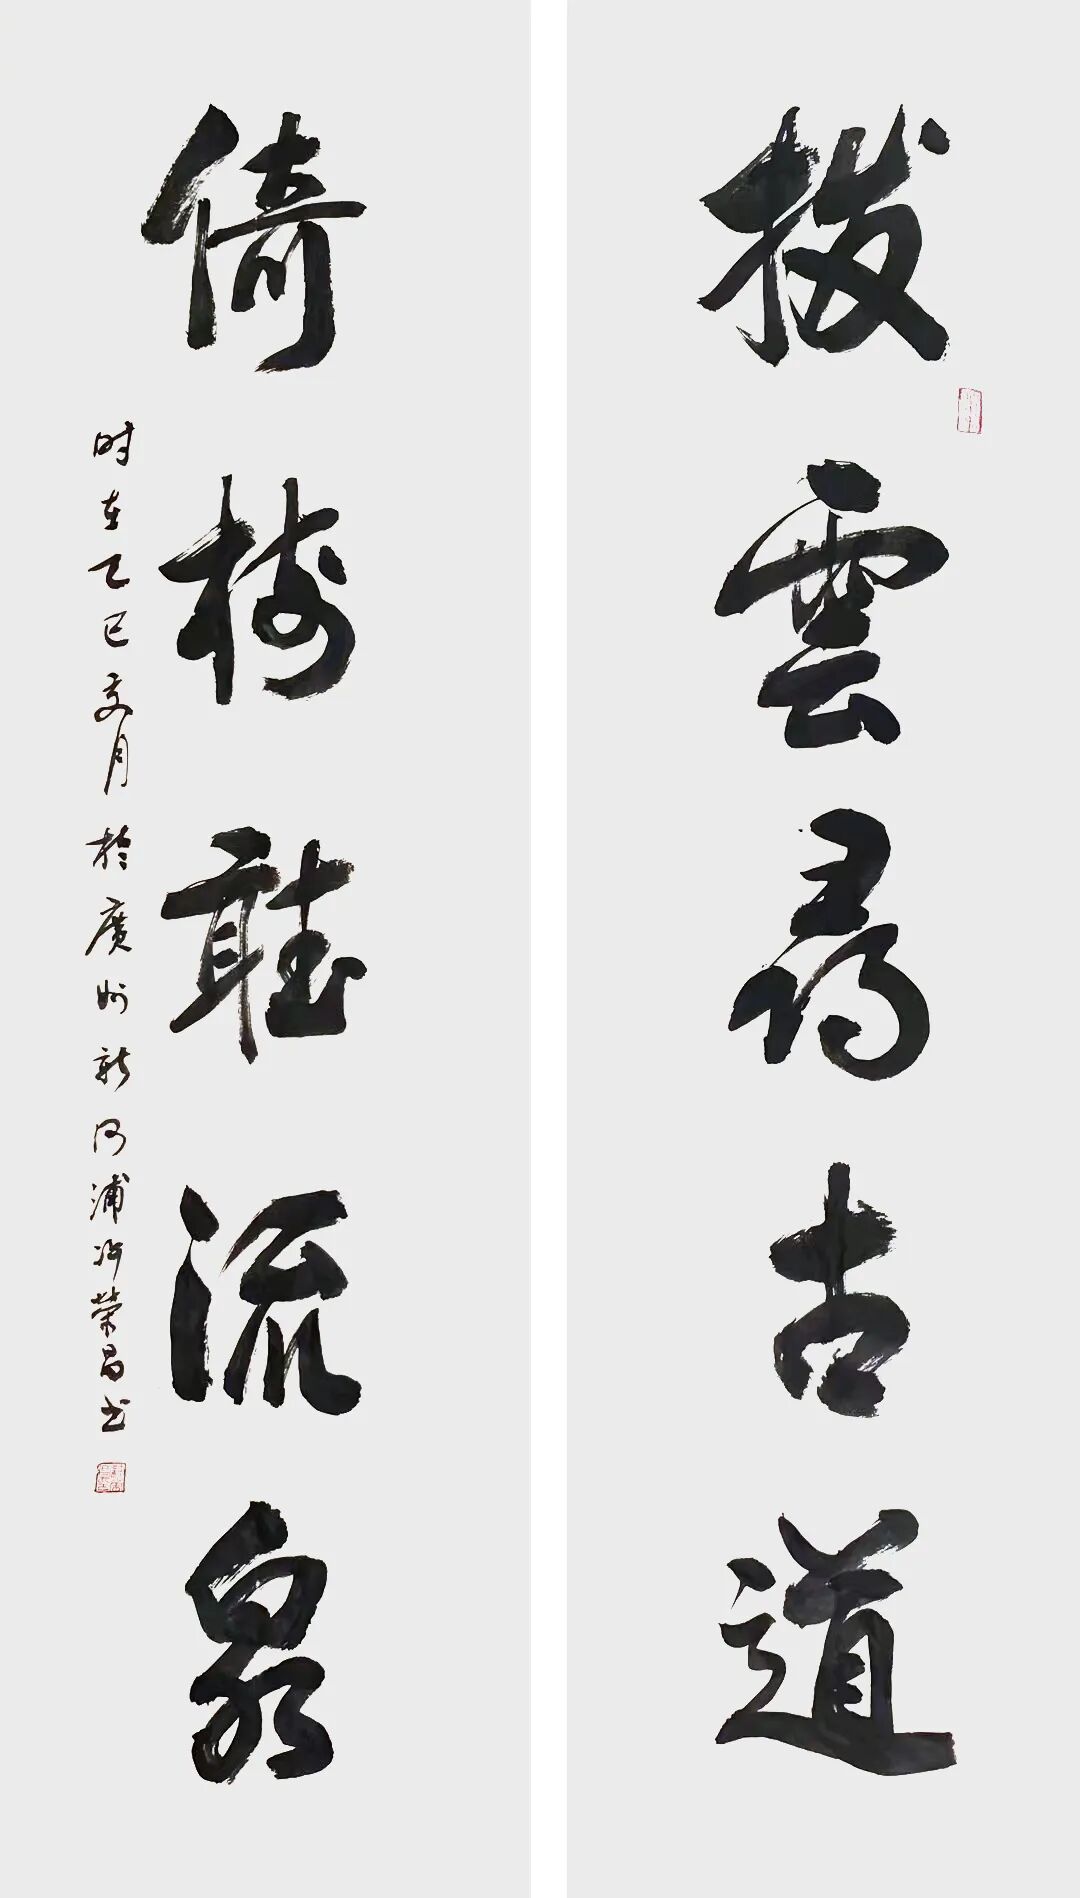 拨雲尋古道
倚樹聽流泉
时在乙巳夏月於廣州新河浦许荣昌书